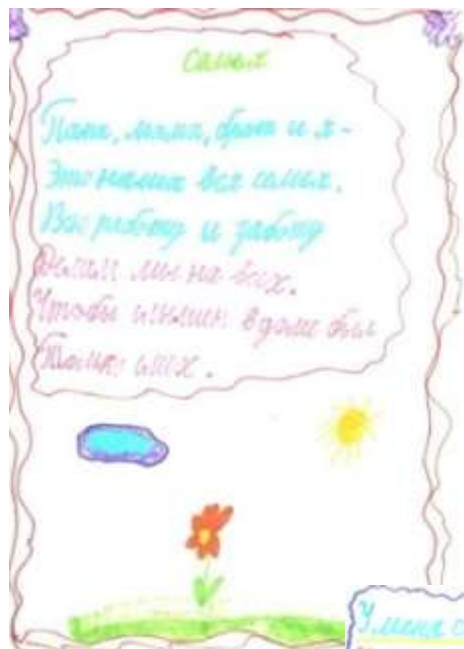 Семья
Папа, мама, брат и я -
Это наша вся семья.
Всю работу и заботу
Делим мы на всех.
Чтобы слышен в доме был
Только смех.
У меня